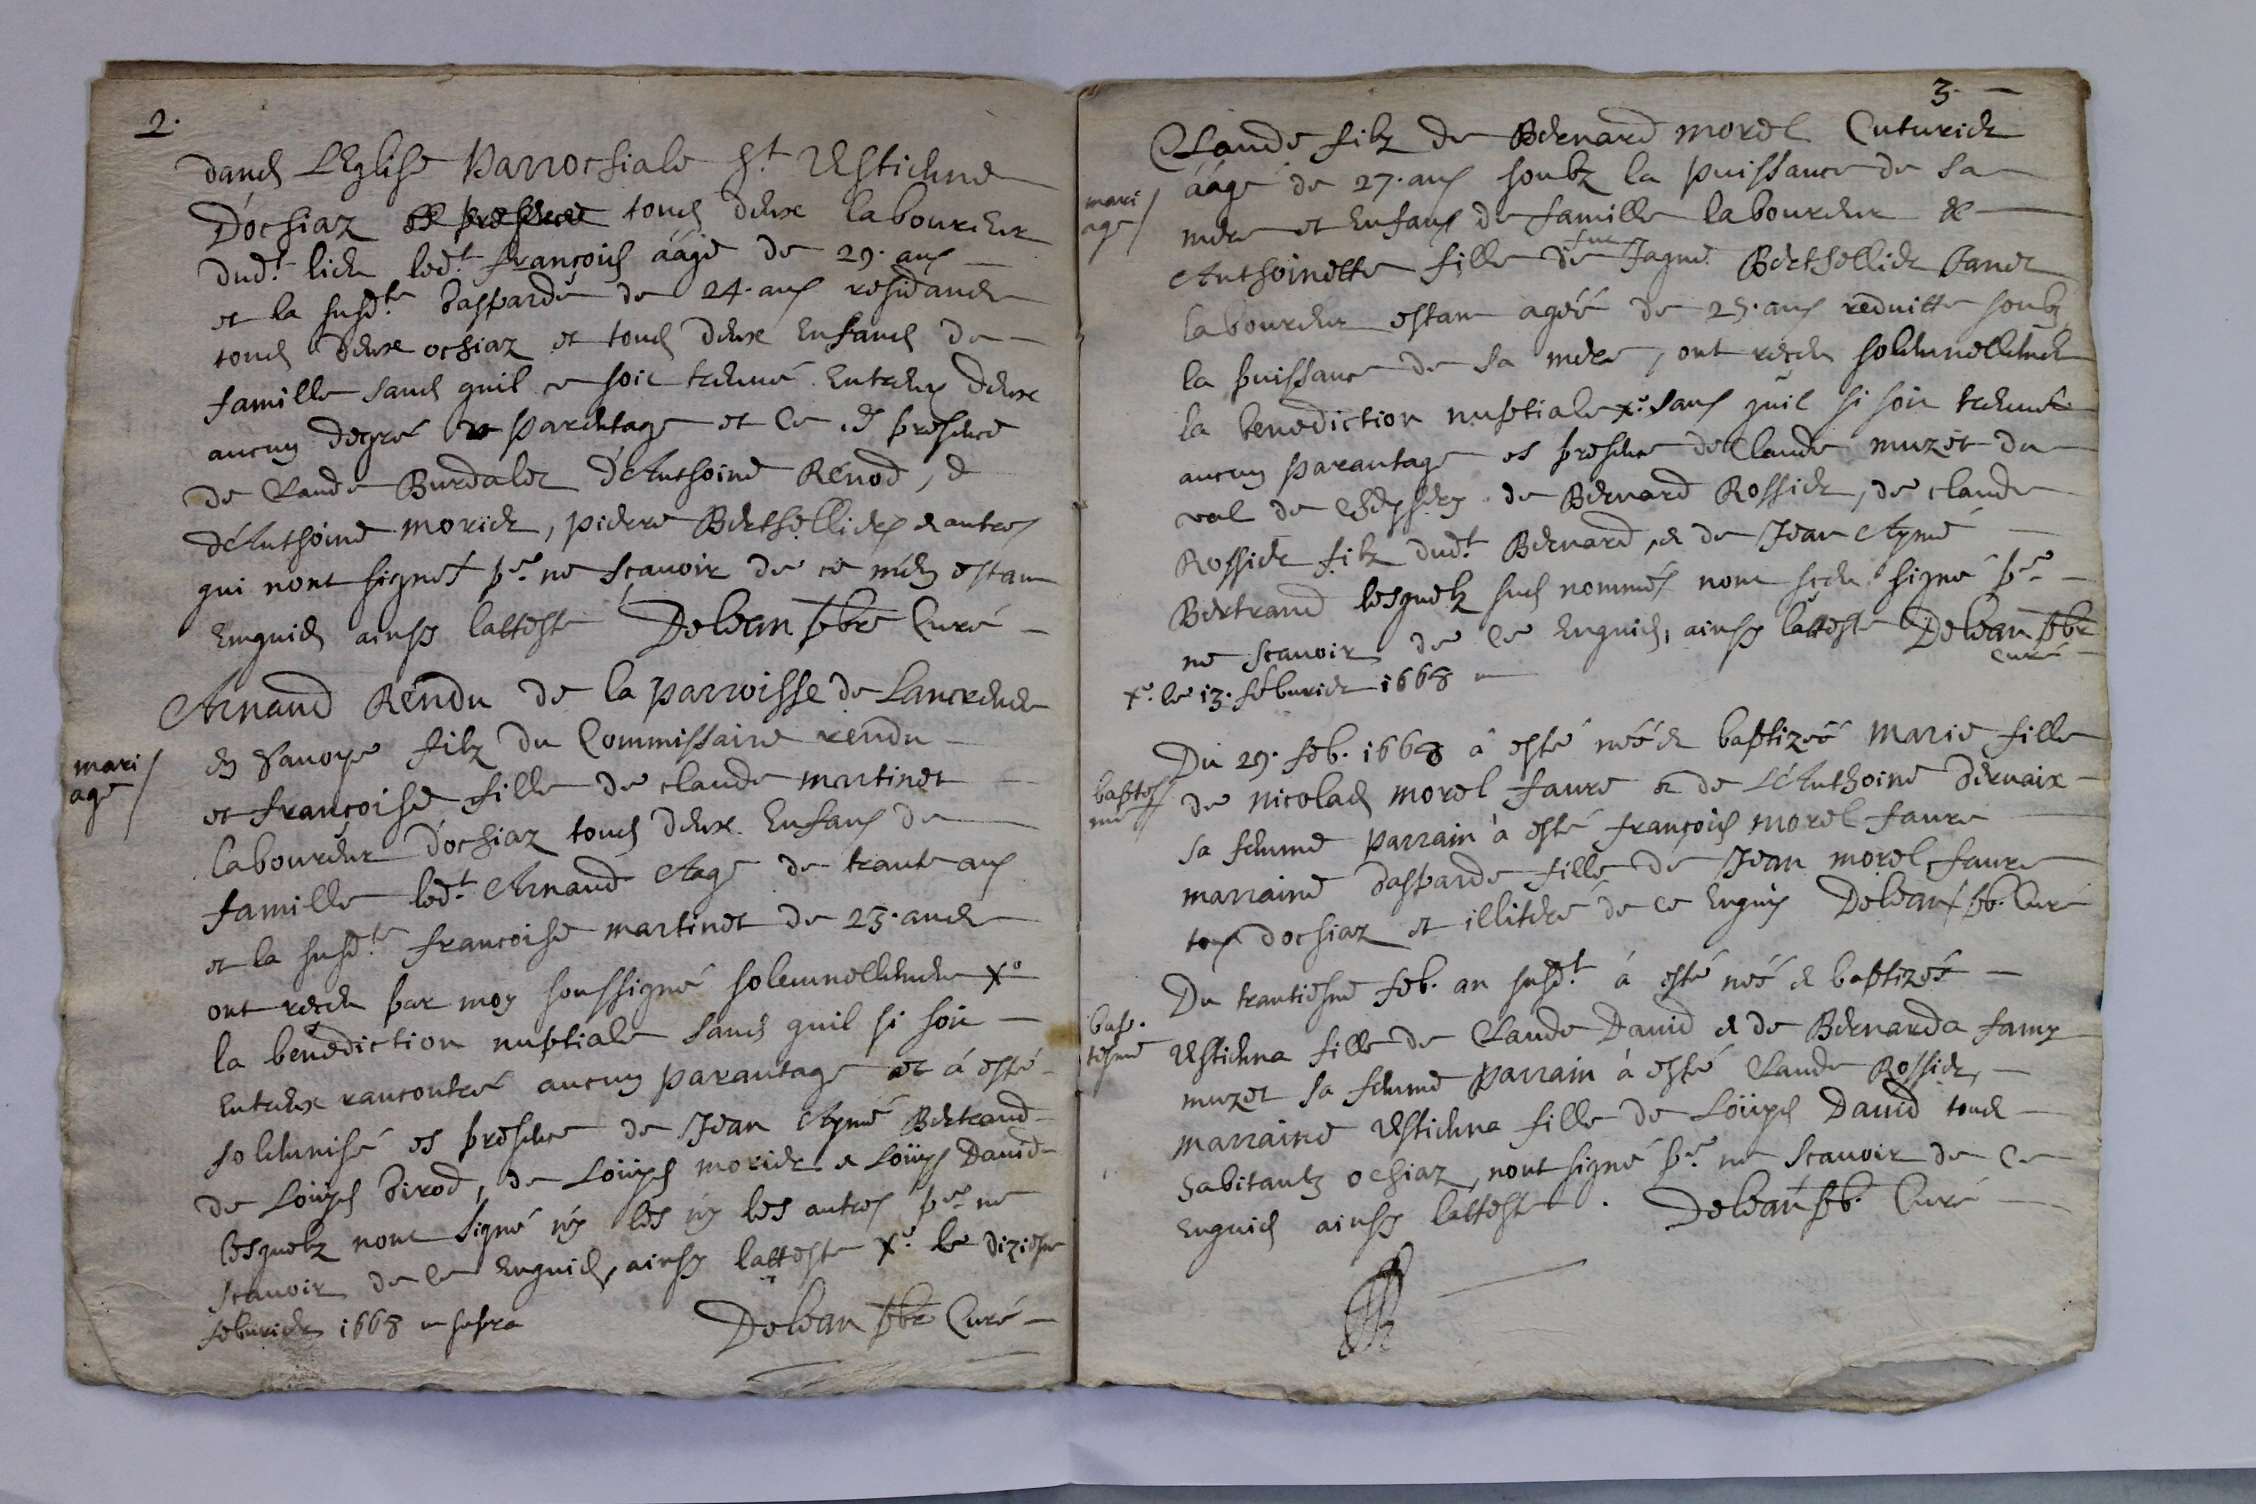 2.
dans LEglise Parrochiale St Estienne
D'ochiaz tous deux laboureur
dudt. lieu ledt. françois áagé de 29. ans
et la susdte. Gasparde de 24. ans residants
tous deux ochiaz et tous deux Enfans de
famille sans quil se soit treuué Entreux deux
aucun degré de parentage et Ce En presence
de Claude Burdalet D'Anthoine Renod, &
d'Anthoine morier, pierre Berthellier & autres
qui nont signés pr. ne scauoir de ce mien estant
Enquis ainsy latteste Delean pbre Curé
mari
age
Arnaud Rendu de la parroisse de Lancrens
En Sauoye filz du Commissaire rendu
et francoise fille de claude martinet
laboureur d'ochiaz tous deux Enfans de
famille ledt. Arnaud Aagé de trante ans
et la susdte. francoise martinet de 23. ans
ont receu par moy soussigné solemnellement X°
la benediction nuptiale sans quil si soit
Entreux rancontré aucun parantage et á esté
solemnisé es presence de Jean Aymé Bertrand
de Loüys Girod, de Loüys morier & Loüys Dauid
lesquelz nont signé ny les ny les autres pr. ne
scauoir de ce Enquis, ainsy latteste X°. le dizieme
feburier 1668 ut supra Delean pbre Curé
3.
mari
age
Claude filz de Bernard morel Cuturier
áagé de 27. ans soubz la puissance de sa
mere et Enfans de famille laboureur &
Anthoinette fille de feu Jaque Berthellier
laboureur estant agéé de 25. ans reduitte soubz
la puissance de sa mere, ont receu solemnellement
la benediction nuptiale x°. sans quil si soit treuué
aucun parantage es presence de Claude muzet du
val de de Bernard Rossier, de claude
Rossier filz dudt. Bernard, & de Jean Aymé
Bertrand lesquelz sus nommés nont sceu signé pr.
ne scauoir de ce Enquis, ainsy latteste Delean pbr
curé
x°. le 13. feburier 1668
baptes
me
Du 29. feb. 1668 á esté néé & baptizéé marie fille
de nicolas morel faure & de L'Anthoine deruaix
sa femme parrain á esté françois morel faure
marraine Gasparde fille de Jean morel faure
tous dochiaz et illiteré de ce Enquis Delean pb. Curé
bap.
tesme
Du trantiesme feb. an susdt. á esté néé & baptizéé
Estiena fille de Claude Dauid & de Bernarda famy
muzet sa femme parrain á esté Claude Rossier,
marraine Estiena fille de Loüys Dauid tous
habitantz ochiaz, nont signé pr. ne scauoir de ce
Enquis ainsy latteste. Delean pb. Curé